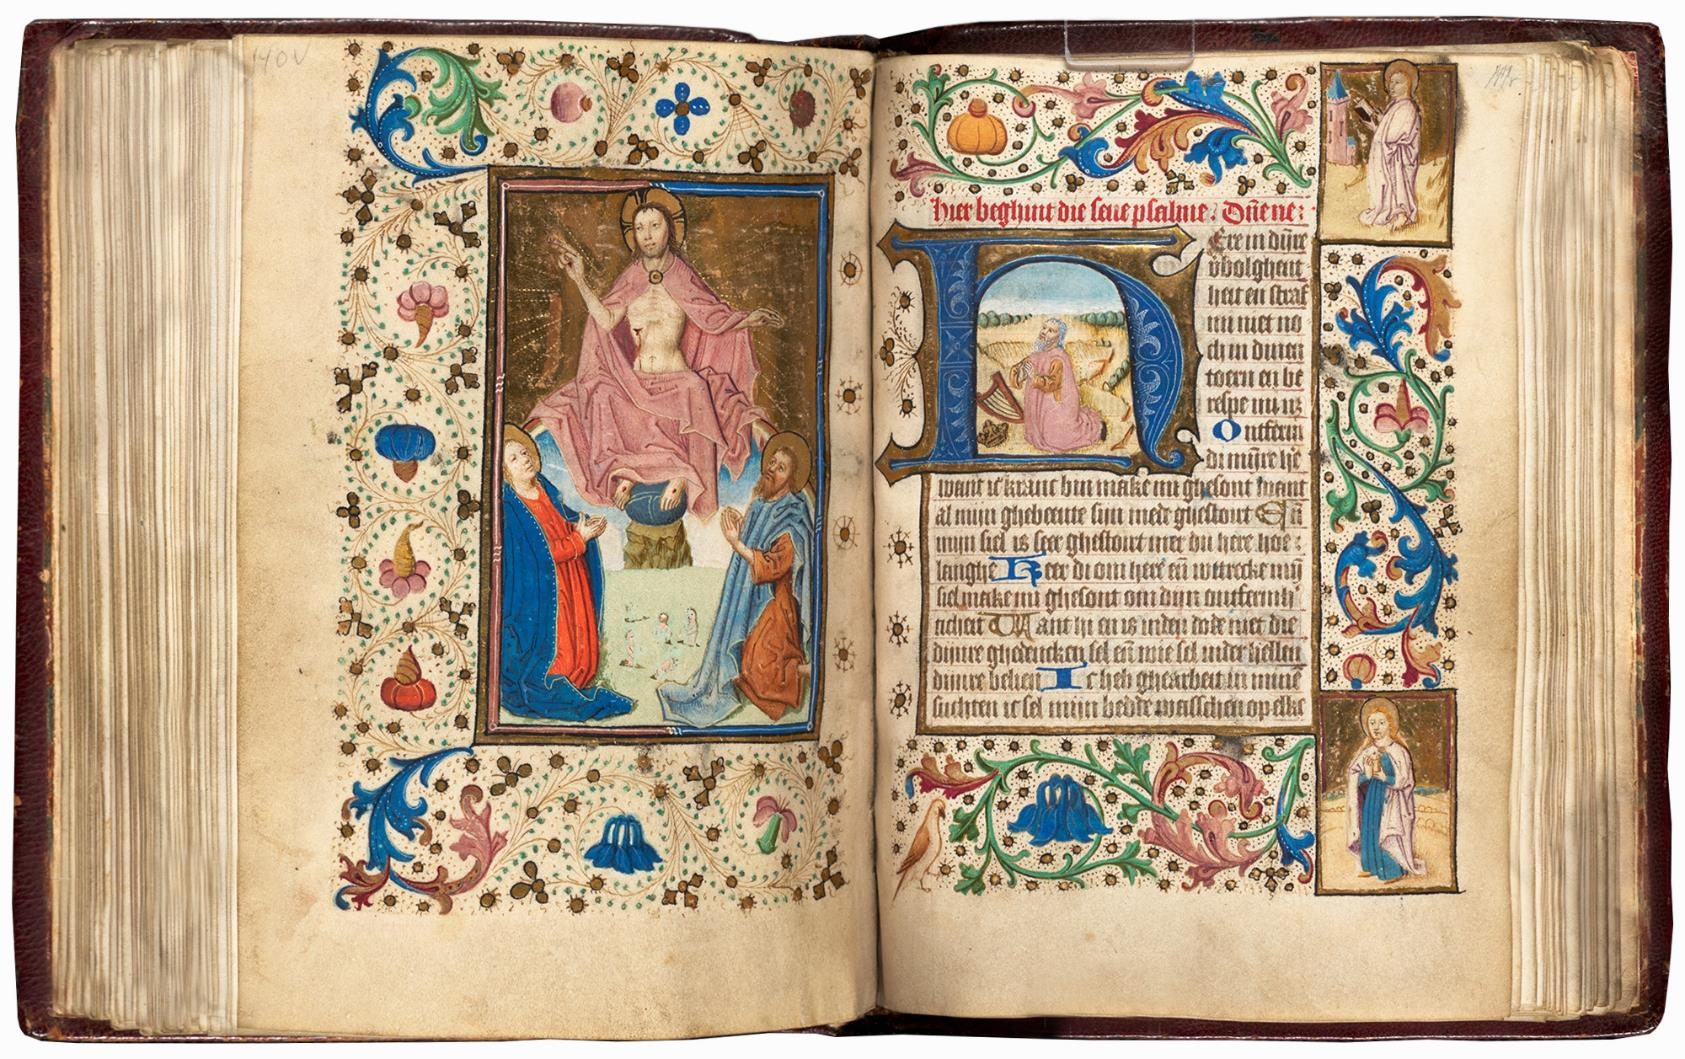 140v
hier beghint die seue psalme. Dñe ne:
HEre in dijre
v̄bolghent
heit en straf
mi niet no
ch in dinen
toern en be
respe mi nz
Ontferm
di mijre hē
want ic kranc bin make mi ghesont want
al mijn ghebeente sijn mede ghestoort Eñ
mijn siel is seer ghestoort mer du here hoe:
langhe Keer di om herē eñ wttrecke mijn
siel make mi ghesont om dijn ontfermh'
ticheit Want hi en is inden dode niet die
dijnre ghedencken sel eñ wie sel inder hellen
dijnre belien Ic heb ghearbeit in minē
suchten ic sel mijn bedde wasschen op elke